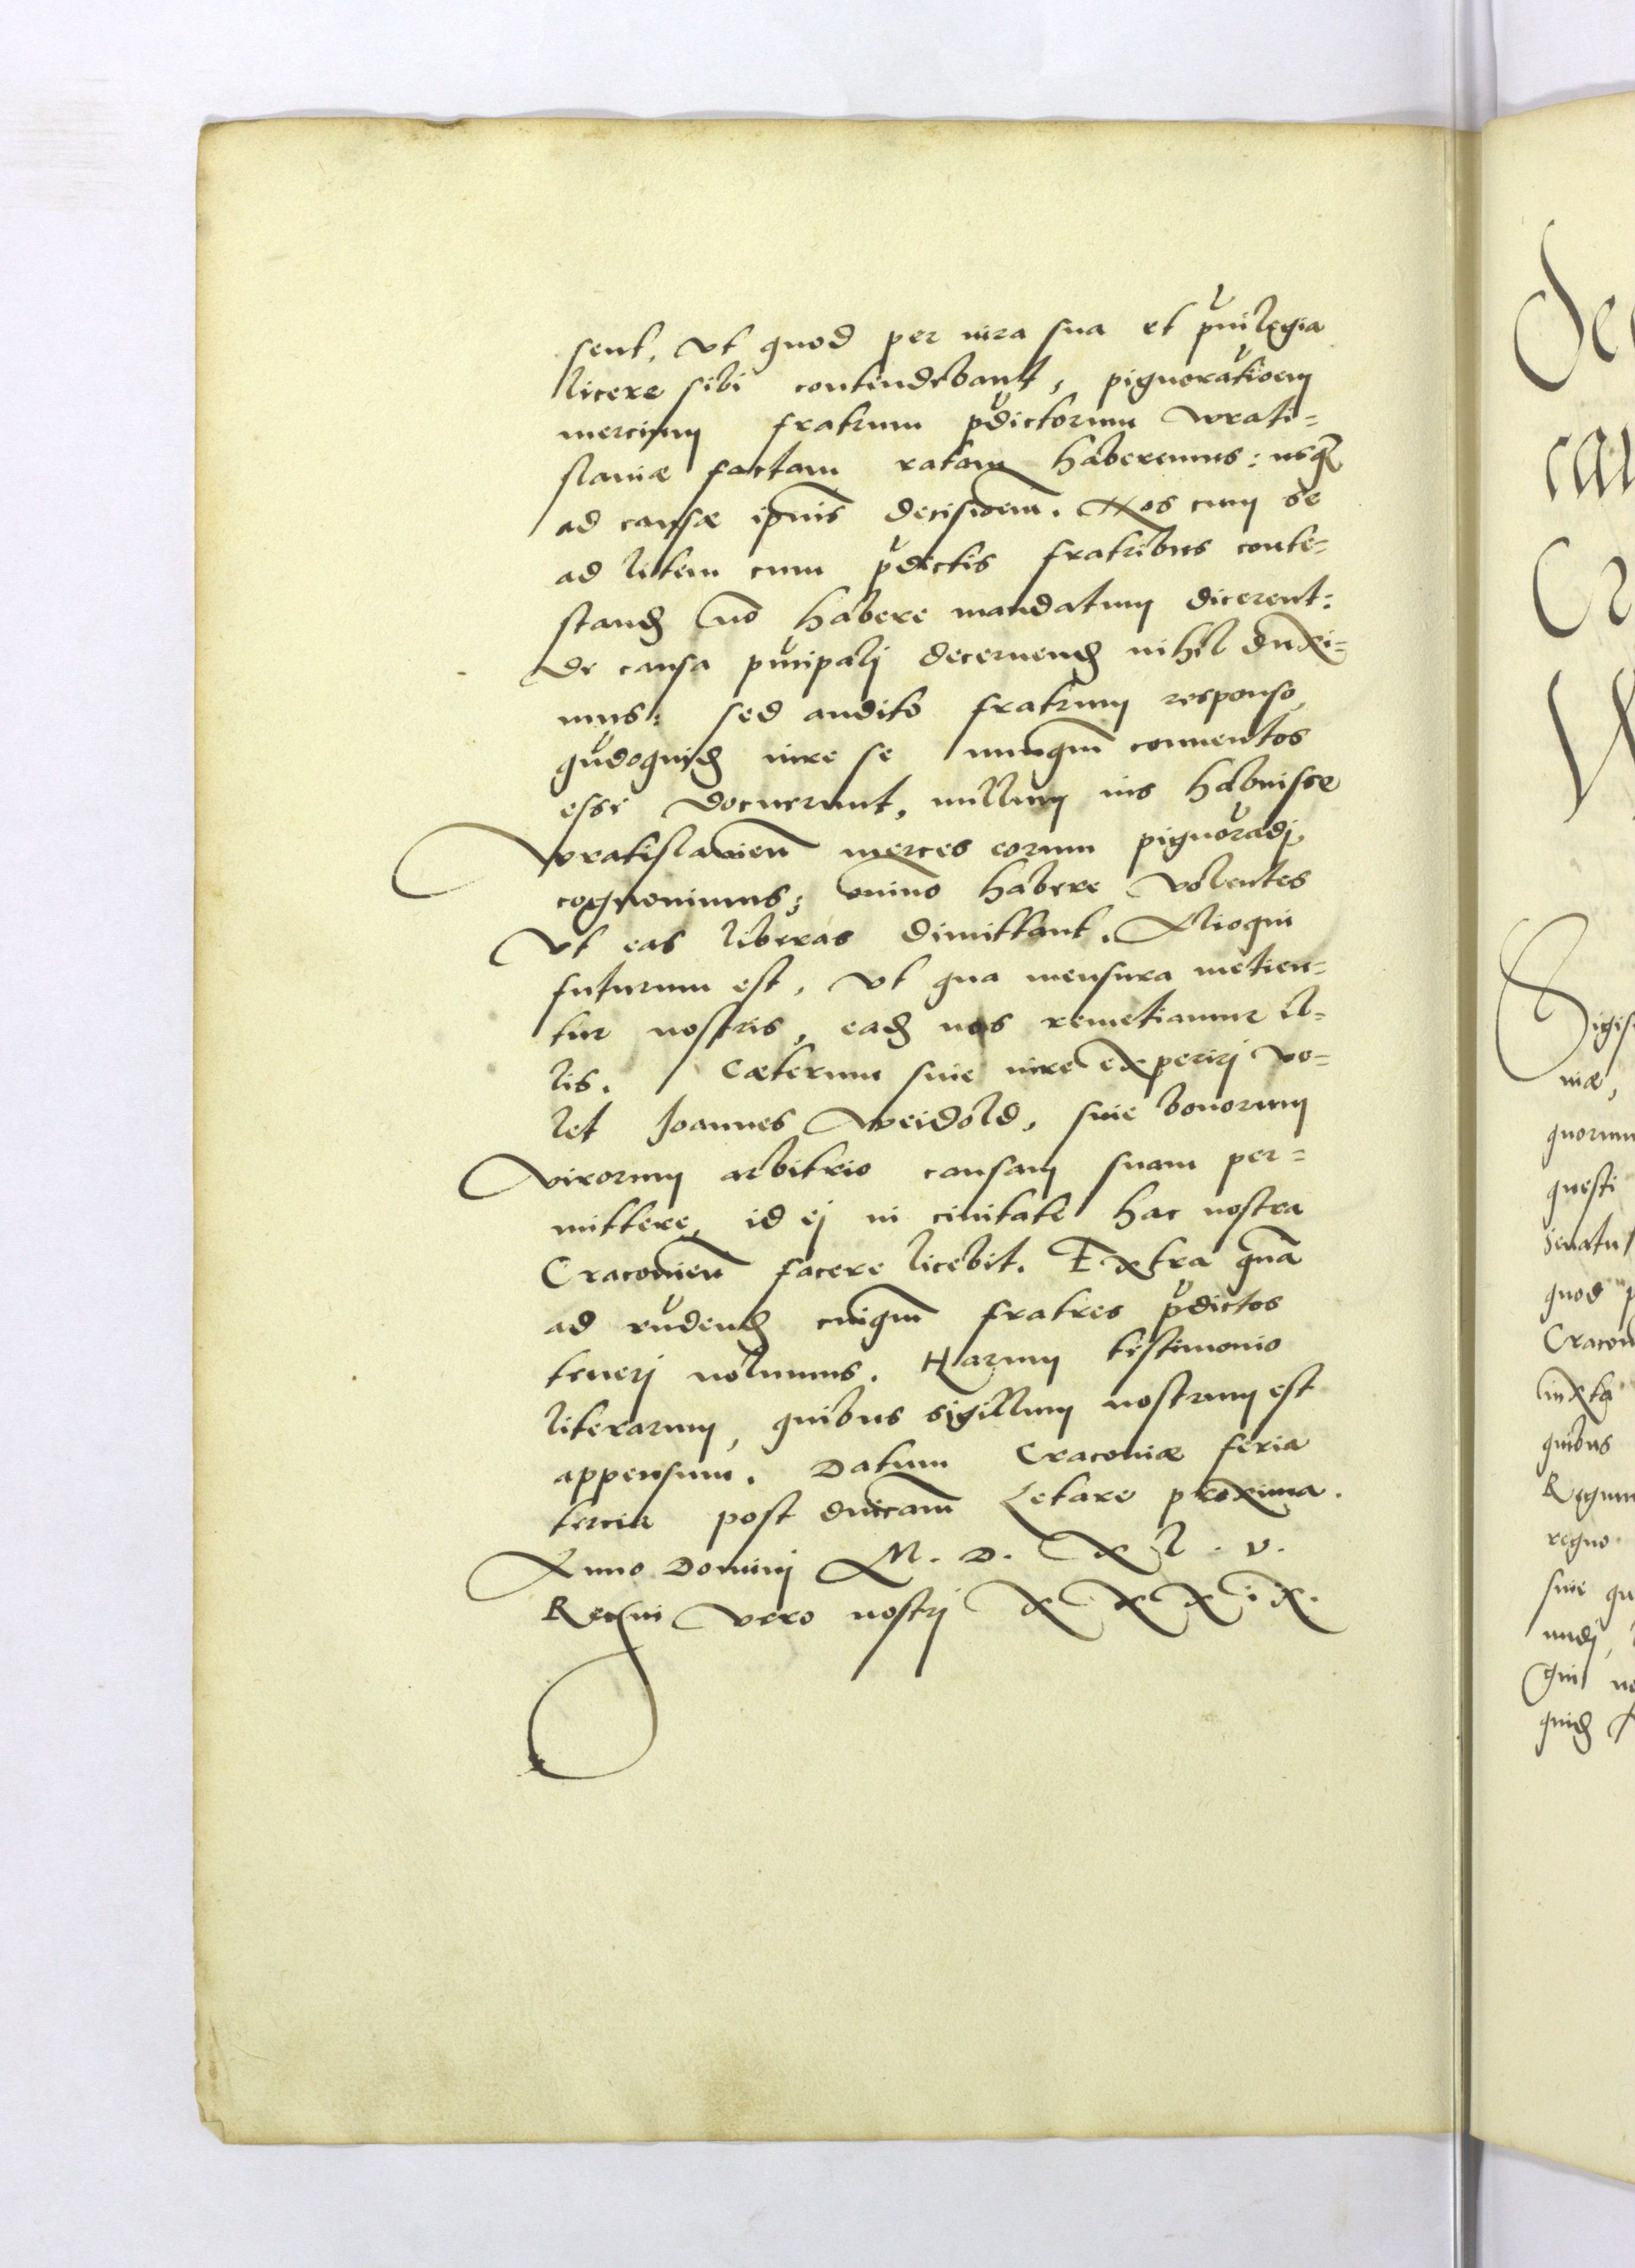 sent, vt quod per iura sua et puilegia
licere sibi contendebant, pignorationem
mercium fratrum pdictorum Wrati=
slauiæ factam ratam haberemus: usq3
ad causæ ipsius decisionem. Nos cum se
ad litem cum pdictis fratribus conte=
stand no habere mandatum dicerent:
de causa pncipali decernend nihil duxi=
mus: sed audito fratrum responso,
qudoquid iure se nunqm conuentos
esse docuerunt, nullum ius habuisse
Vratislauien merces eorum pignoradi
cognouimus; omnino habere volentes
Vt eas liberas dimittant. Alioqui
futurum est, vt qua mensura metien=
tur nostris, ead nos remetiamur il=
lis. Cæterum siue iure experiri vo=
let Joannes Weidold, siue bonorum
virorum arbitrio causam suam per=
mittere, id ei in ciuitate hac nostra
Cracouien facere licebit. Extra qua
ad rndend cuiqm fratres pdictos
teneri nolumus. Harum testimonio
literarum, quibus sigillum nostrum est
appensum. Datum Cracouiæ feria
tercia post dnicam Letare proxima.
Anno Domini M. D. XL. V.
Regni vero nostri XXXIX.
Sigis
niæ,
quorum
questi
senatu
quod p
Cracou
iuxta
quibus
Regum
regno
siue qu
undi,
Qui no
quid